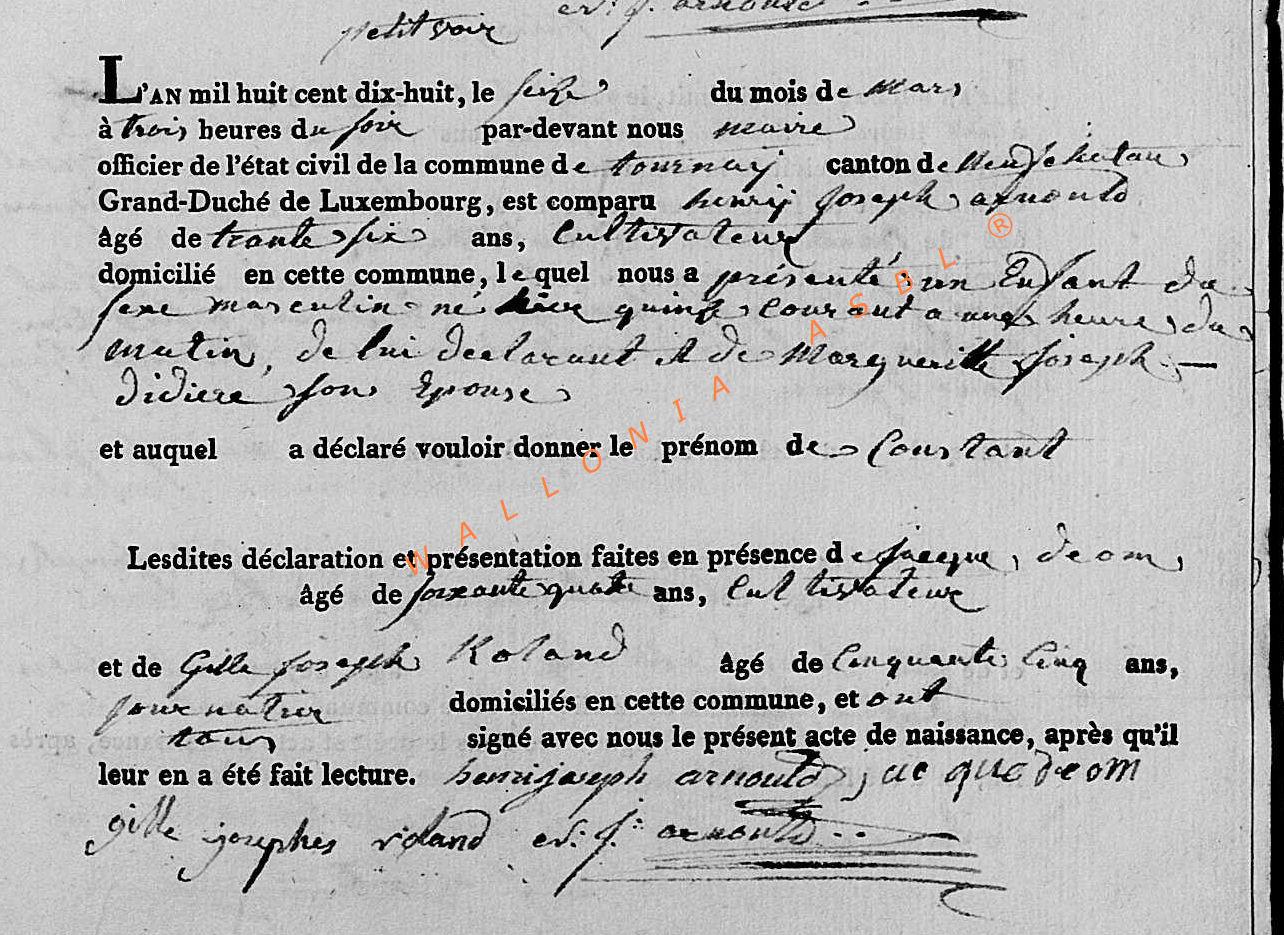 petitvoir ev: f. arnould
L'AN mil huit cent dix-huit, le seize du mois de Mars
à trois heures du soir par-devant nous maire
officier de l'état civil de la commune de tournay canton de Neufchatau
Grand-Duché de Luxembourg, est comparu henrij Joseph arnould
âgé de trante six ans, Cultivateur
domicilié en cette commune, lequel nous a présenté un Enfant du
sexe masculin né hier quinze courant a une heure du
matin, de lui declarant et de Margueritte joseph —
didiere son Epouse
et auquel a déclaré vouloir donner le prénom de Constant
Lesdites déclaration et présentation faites en présence de jacque deom
âgé de soixante quatre ans, Cultivateur
et de Gille joseph Roland âgé de Cinquante Cinq ans,
journalier domiciliés en cette commune, et ont
tous signé avec nous le présent acte de naissance, après qu'il
leur en a été fait lecture. henrijoseph arnould jacque deom
gille josephes roland ev: f: arnould
WALLONIA ASBL ®